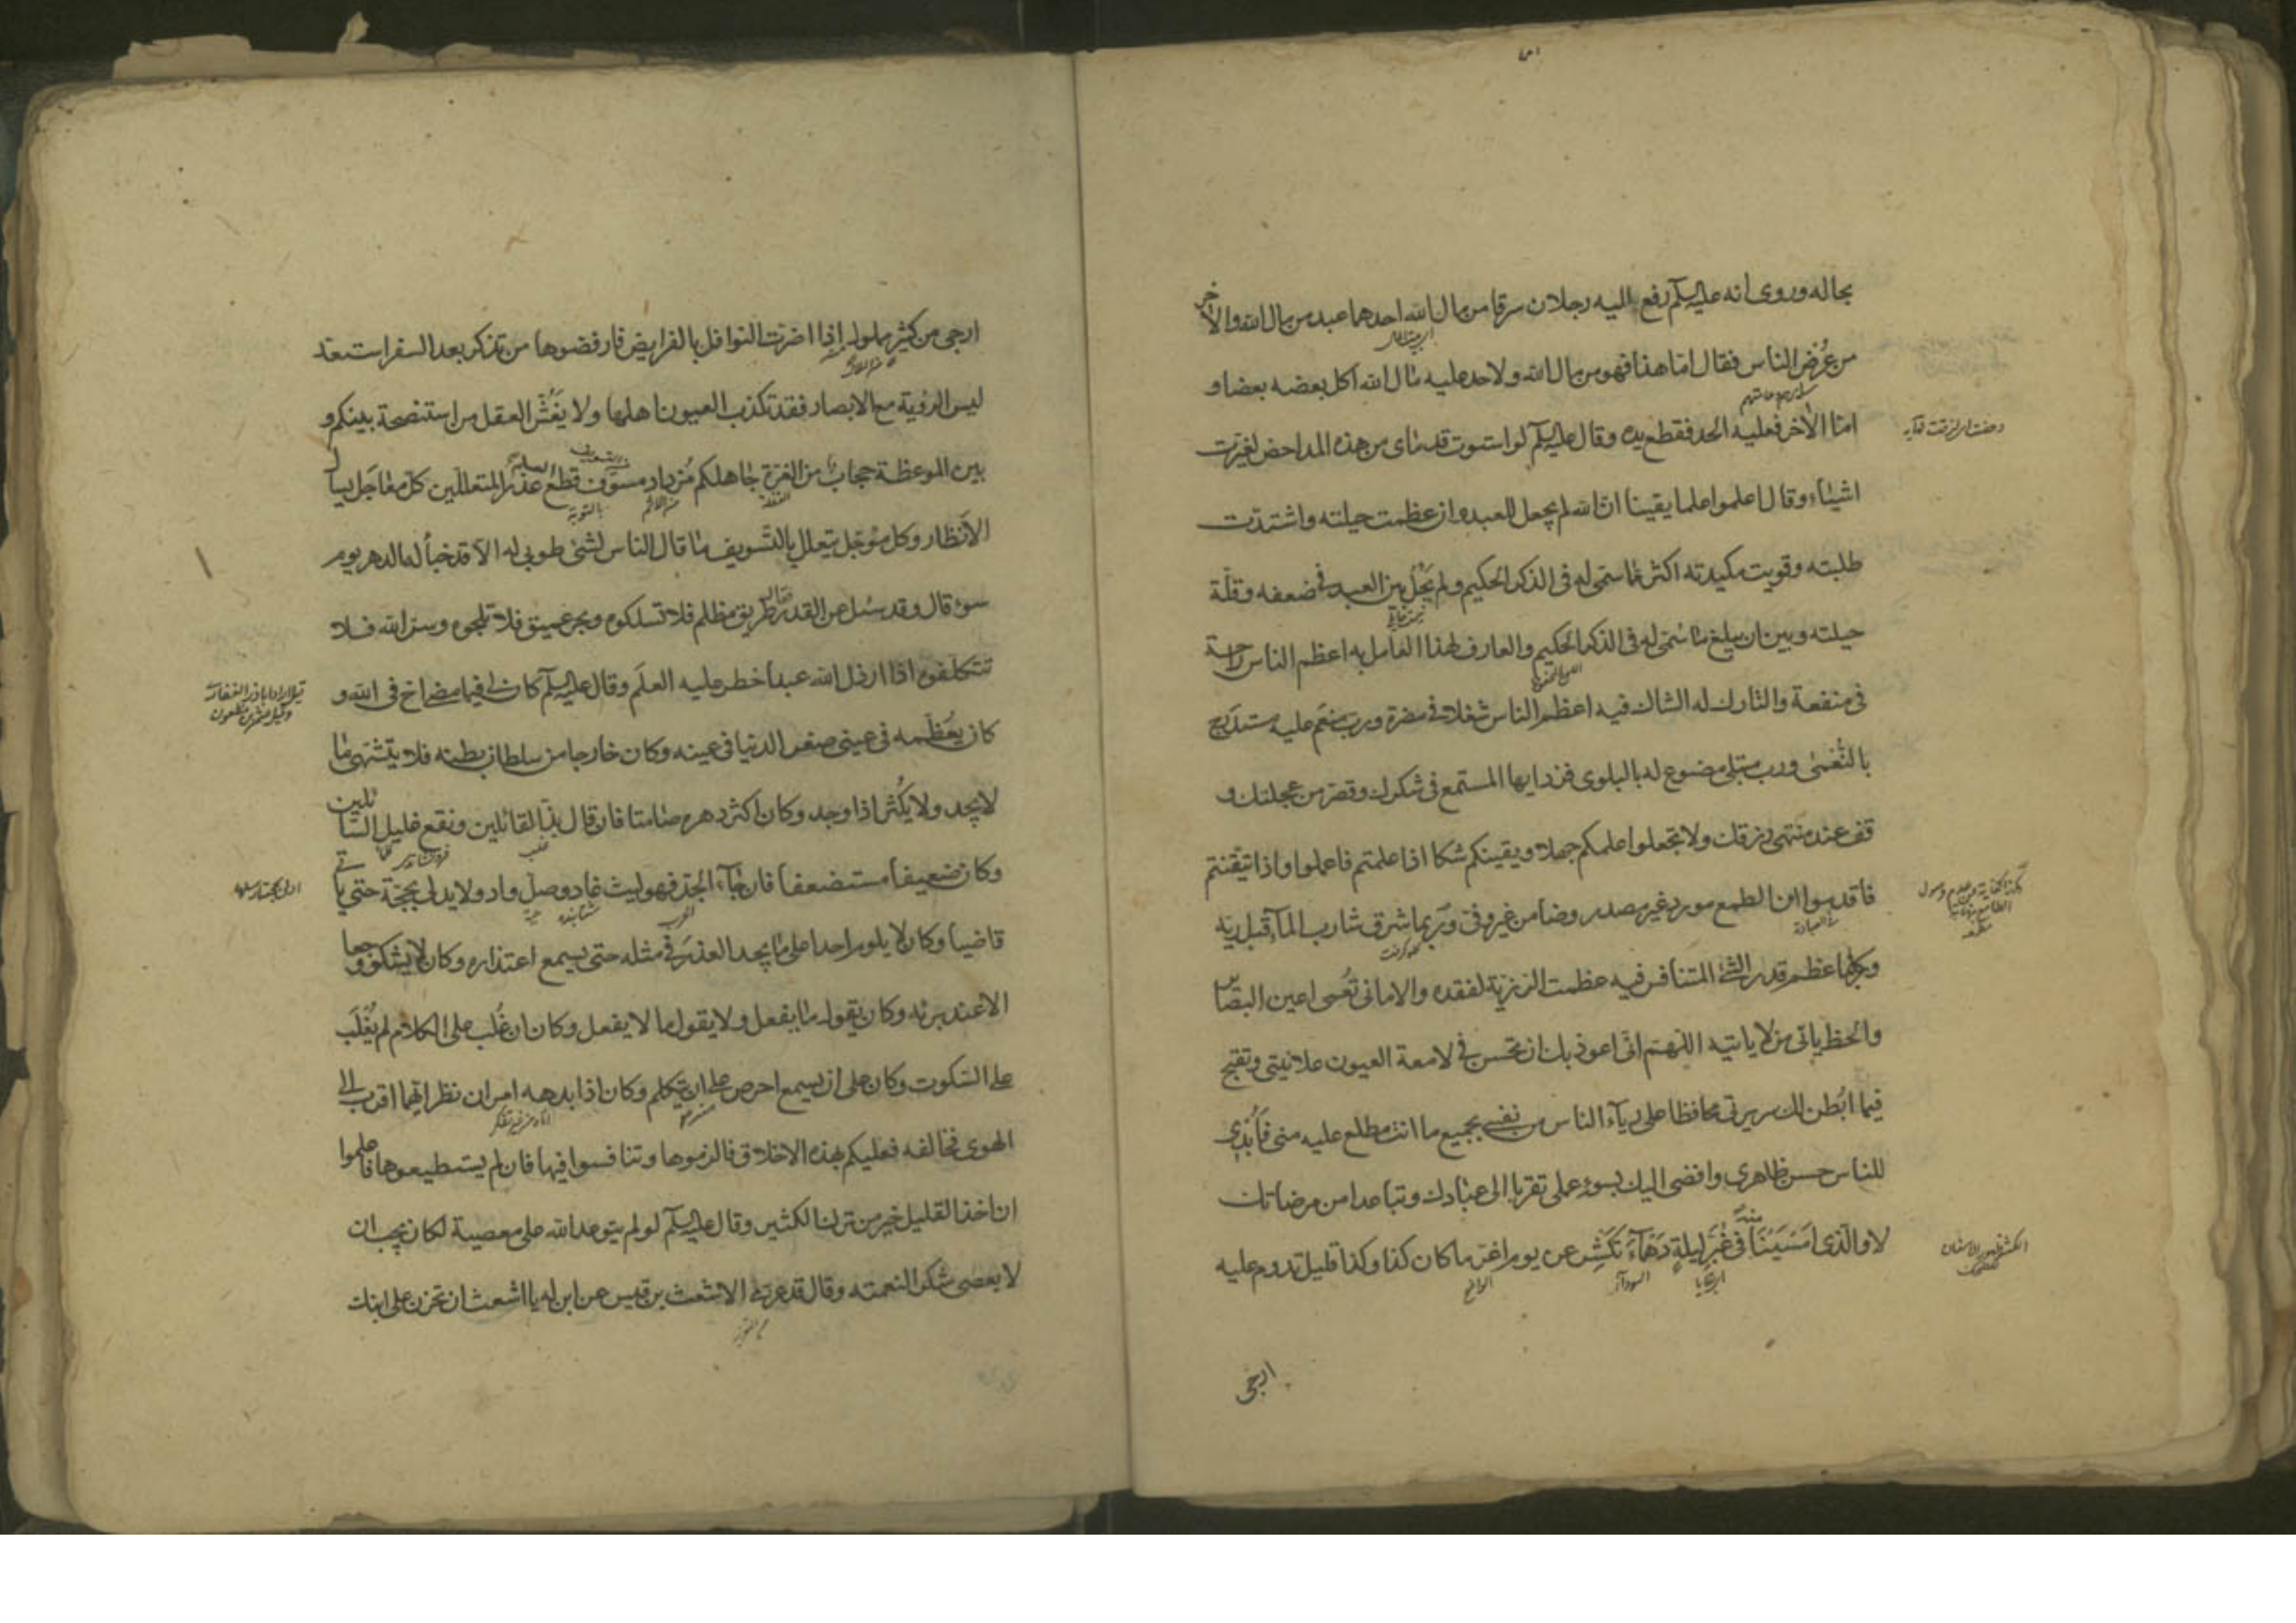 بحاله وروى انه عليه السلم رفع اليه رجلان سرقا من مال الله احدهما عبد من مال الله والاخر
من عُرُض الناس فقال اما هذا فهو من مال الله ولا حد عليه مال الله اكل بعضه بعضا و
اما الاخر فعليه الحد فقطع يده وقال عليه السلم لو استوت قدماى من هذه المداحض لغيرت
اشياء وقال اعلموا علما يقينا ان الله لم يجعل للعبد وان عظمت حيلته واشتدت
طلبته وقويت مكيدته اكثر مما سمى له فى الذكر الحكيم ولم يَحُل بين العبد فى ضعفه وقلّة
حيلته وبين ان يبلغ ما سمى له فى الذكر الحكيم والعارف لهذا العامل به اعظم الناس راحة
فى منفعة والتارك له الشاك فيه اعظم الناس شغلا فى مضرة ورب منعَم عليه مستدرَج
بالنُّعمى ورب مبتلى مصنوع له بالبلوى فزد ايها المستمع فى شكرك وقصّر من عجلتك و
قف عند منتهى رزقك ولا تجعلوا علمكم جهلا ويقينكم شكا اذا علمتم فاعملوا واذا تيقنتم
فاقدموا ان الطمع مورد غير مصدر وضامن غير وفىّ وربما شرق شارب الماء قبل ريّه
وكلما عظم قدر الشئ المتنافس فيه عظمت الرزية لفقده والامانى تُعمى اعين البصائر
والحظ ياتى من لا ياتيه اللهم انى اعوذ بك ان تحسن فى لامعة العيون علانيتى وتقبح
فيما ابطن لك سريرتى محافظا على رياء الناس من نفسى بجميع ما انت مطلع عليه منى فاُبدى
للناس حسن ظاهرى وافضى اليك بسوء عملى تقربا الى عبادك وتباعدا من مرضاتك
لا والذى امسينا منه فى غُبَّر ليلة دهماء تكشر عن يوم اغر ما كان كذا وكذا قليل تدوم عليه
ارجى
ارجى من كثير مملول اذا اضرت النوافل بالفرايض فارفضوها من تذكر بعد السفر استعد
ليس الرؤية مع الابصار فقد تكذب العيون اهلها ولا يغش العقل من استنصحه بينكم و
بين الموعظة حجاب من الغرة جاهلكم مزداد مسوّف قطع العلم عذر المتعللين كل معاجل يسال
الانظار وكل مؤجل يتعلل بالتسويف ما قال الناس لشئ طوبى له الا قد خبأ له الدهر يوم
سوء قال وقد سئل عن القدر فقال طريق مظلم فلا تسلكوه وبحر عميق فلا تلجوه وسر الله فلا
تتكلفوه اذا ارذل الله عبدا حظر عليه العلم وقال عليه السلم كان لى فيما مضى اخ فى الله و
كان يعظمه فى عينى صغر الدنيا فى عينه وكان خارجا من سلطان بطنه فلا يتشهى ما
لا يجد ولا يكثر اذا وجد وكان اكثر دهره صامتا فان قال بذّ القائلين ونقع غليل السائلين
وكان ضعيفا مستضعفا فان جاء الجد فهو ليث غاد وصل واد ولا يدلى بحجة حتى ياتى
قاضيا وكان لا يلوم احدا على ما يجد العذر فى مثله حتى يسمع اعتذاره وكان لا يشكو وجعا
الا عند برئه وكان يقول ما يفعل ولا يقول ما لا يفعل وكان ان غُلب على الكلام لم يُغْلَب
على السكوت وكان على ان يسمع احرص على ان يتكلم وكان اذا بدهه امران نظر ايهما اقرب الى
الهوى فخالفه فعليكم بهذه الاخلاق فالزموها وتنافسوا فيها فان لم يستطيعوها فاعلموا
ان اخذ القليل خير من ترك الكثير وقال عليه السلم لو لم يتوعد الله على معصية لكان يجب ان
لا يعصى شكرا لنعمته وقال قد عزى الاشعث بن قيس عن ابن له يا اشعث ان تحزن على ابنك